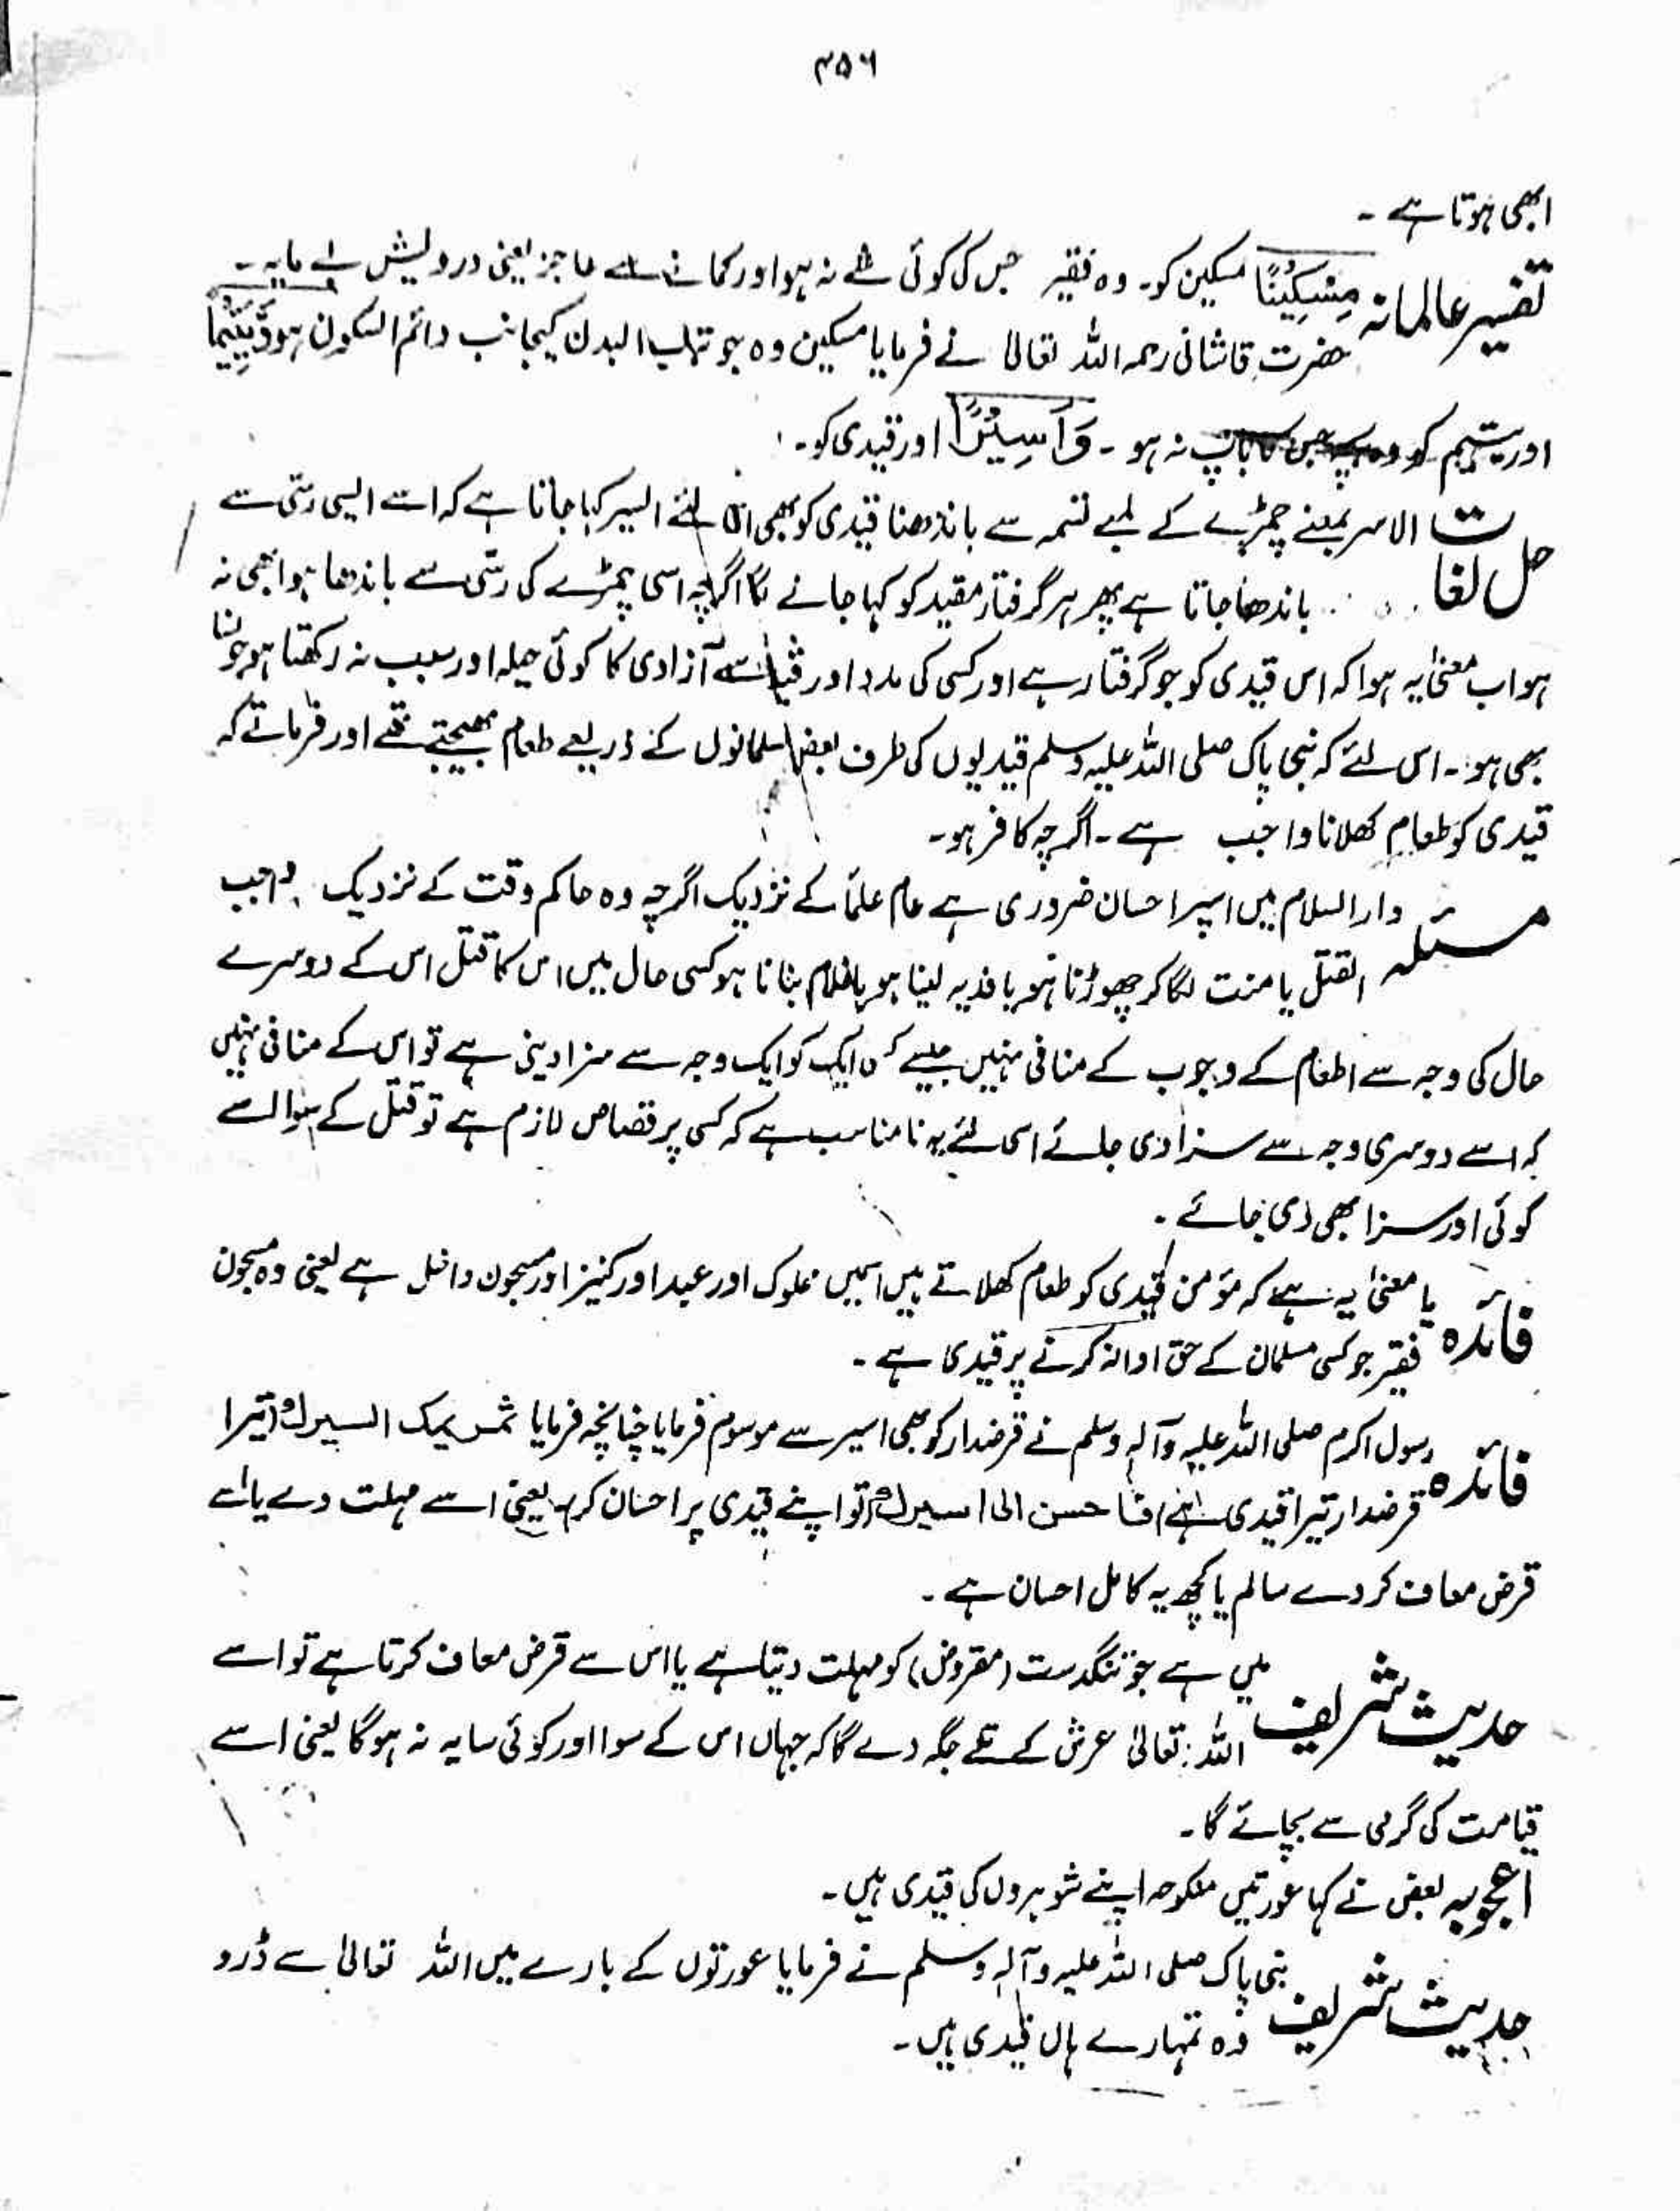 ۳۵۶
ابھی ہوتا ہے ۔
تفسیر عالمانہ مِسْکِیْنًا مسکین کو۔ وہ فقیر جس کی کوئی شے نہ ہو اور کمانے سے عاجز یعنی درویش بے مایہ ۔
حضرت قاشانی رحمہ اللہ تعالیٰ نے فرمایا مسکین وہ جو تراب البدن کیجانب دائم السکون ہو وَّیَتِیْمًا
اور یتیم کو وہ جس کا باپ نہ ہو ۔ وَاَسِیْرًا اور قیدی کو۔
حل لغات الاسر بمعنے چمڑے کے لمبے تسمہ سے باندھنا قیدی کو بھی اسی لئے اسیر کہا جاتا ہے کہ اسے ایسی رسّی سے
باندھا جاتا ہے پھر ہر گرفتار مقید کو کہا جانے لگا اگرچہ اسی چمڑے کی رسّی سے باندھا ہوا بھی نہ
ہو اب معنیٰ یہ ہوا کہ اس قیدی کو جو گرفتار ہے اور کسی کی مدد اور سے آزادی کا کوئی حیلہ اور سبب نہ رکھتا ہو جونسا
بھی ہو ۔ اس لئے کہ نبی پاک صلی اللہ علیہ وسلم قیدیوں کی طرف بعض مسلمانوں کے ذریعے طعام بھیجتے تھے اور فرماتے کہ
قیدی کو طعام کھلانا واجب ہے ۔ اگرچہ کافر ہو۔
مسئلہ دار السلام میں اسپر احسان ضروری ہے عام علمأ کے نزدیک اگرچہ وہ حاکم وقت کے نزدیک واجب
القتل یا منت لگا کر چھوڑنا ہو یا فدیہ لینا ہو یا غلام بنانا ہو کسی حال میں اس کا قتل اس کے دوسرے
حال کی وجہ سے اطعام کے وجوب کے منافی نہیں جیسے کہ ایک کو ایک وجہ سے سزا دینی ہے تو اس کے منافی نہیں
کہ اسے دوسری وجہ سے سزا دی جائے اسی لئے یہ نامناسب ہے کہ کسی پر قصاص لازم ہے تو قتل کے سوا اسے
کوئی اور سزا بھی دی جائے ۔
فائدہ یا معنیٰ یہ ہے کہ مؤمن قیدی کو طعام کھلاتے ہیں اسمیں مملوک اور عبد اور کنیز اور مسجون داخل ہے یعنی وہ مسجون
فقیر جو کسی مسلمان کے حق ادا نہ کرنے پر قیدی ہے ۔
فائدہ رسول اکرم صلی اللہ علیہ وآلہٖ وسلم نے قرضدار کو بھی اسیر سے موسوم فرمایا چنانچہ فرمایا غریمک اسیرک (تیرا
قرضدار تیرا قیدی ہے) فاحسن الی اسیرک (تو اپنے قیدی پر احسان کر) یعنی اسے مہلت دے یا اسے
قرض معاف کر دے سالم یا کچھ یہ کامل احسان ہے ۔
حدیث شریف میں ہے جو تنگدست (مقروض) کو مہلت دیتا ہے یا اس سے قرض معاف کرتا ہے تو اسے
اللہ تعالیٰ عرش کے تلے جگہ دے گا کہ جہاں اس کے سوا اور کوئی سایہ نہ ہوگا یعنی اسے
قیامت کی گرمی سے بچائے گا ۔
اعجوبہ بعض نے کہا عورتیں منکوحہ اپنے شوہروں کی قیدی ہیں ۔
حدیث شریف نبی پاک صلی اللہ علیہ وآلہٖ وسلم نے فرمایا عورتوں کے بارے میں اللہ تعالیٰ سے ڈرو
وہ تمہارے ہاں قیدی ہیں ۔